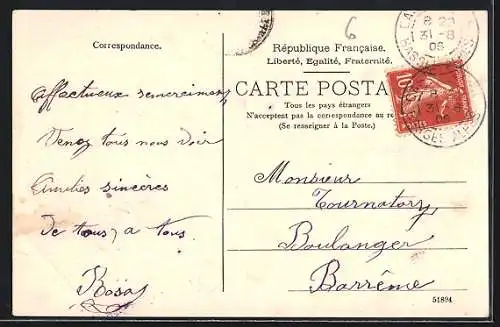 Correspondance.
Affectueux remerciements
Venez tous nous voir
Amitiés sincères
de tous, a tous.
Rosa
6
République Française.
Liberté, Egalité, Fraternité.
CARTE POSTA
Tous les pays étrangers
N'acceptent pas la correspondance au re
(Se renseigner à la Poste.)
8 25
31 - 8
08
10
Monsieur
Tournatory
Boulanger
Barrême
51894